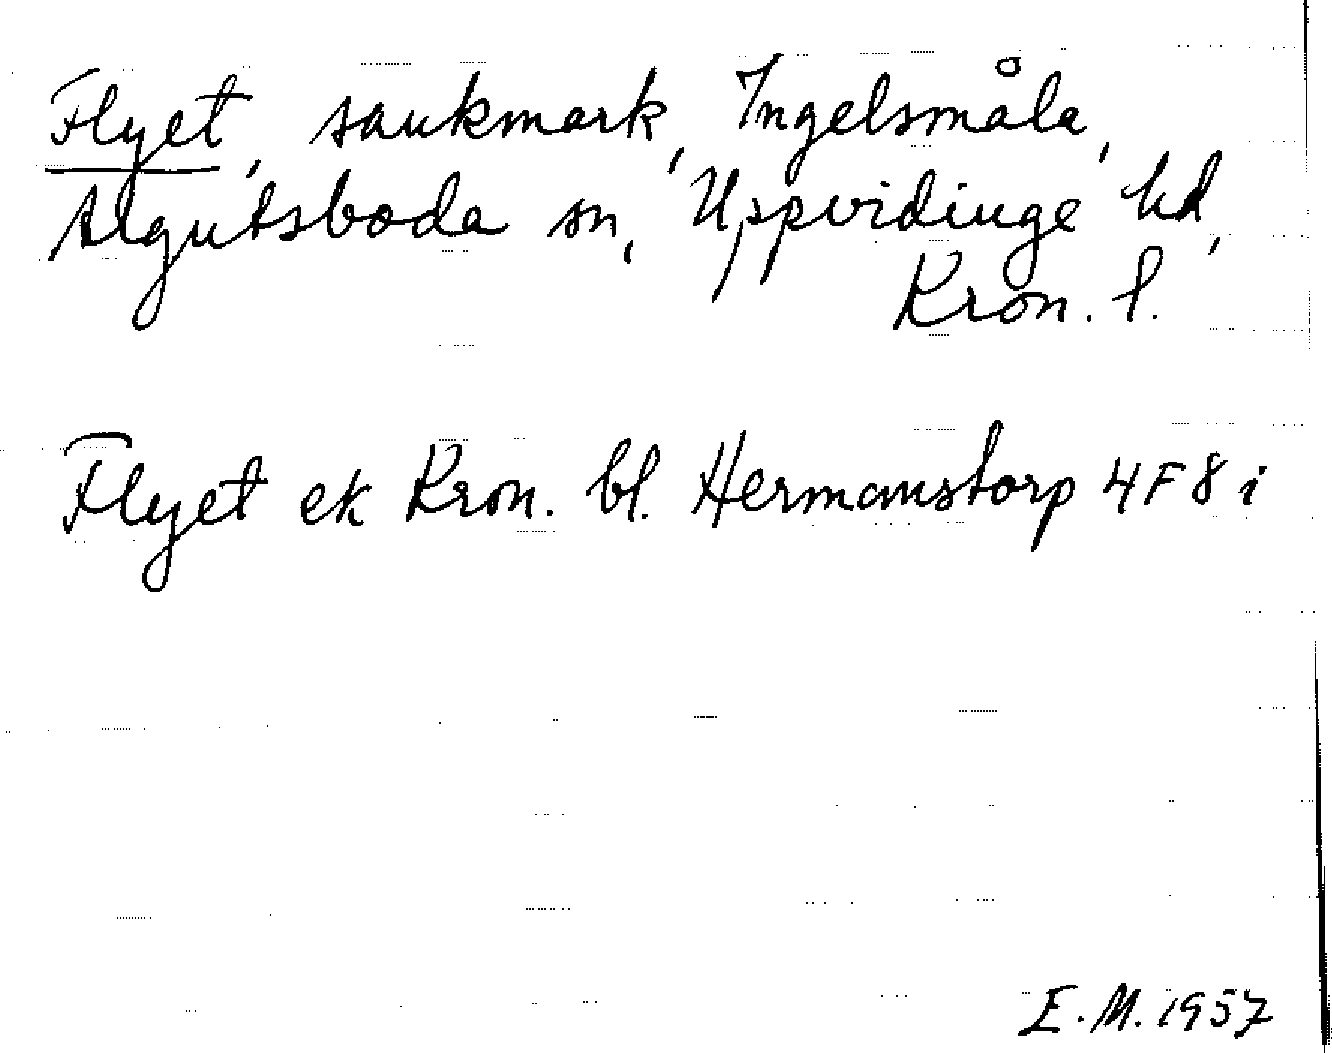 Flyet, sankmark, Ingelsmåla,
Algutsboda sn, Uppvidinge hd,
Kron. l.
Flyet ek Kron. bl. Hermanstorp 4F8i
E.M. 1957